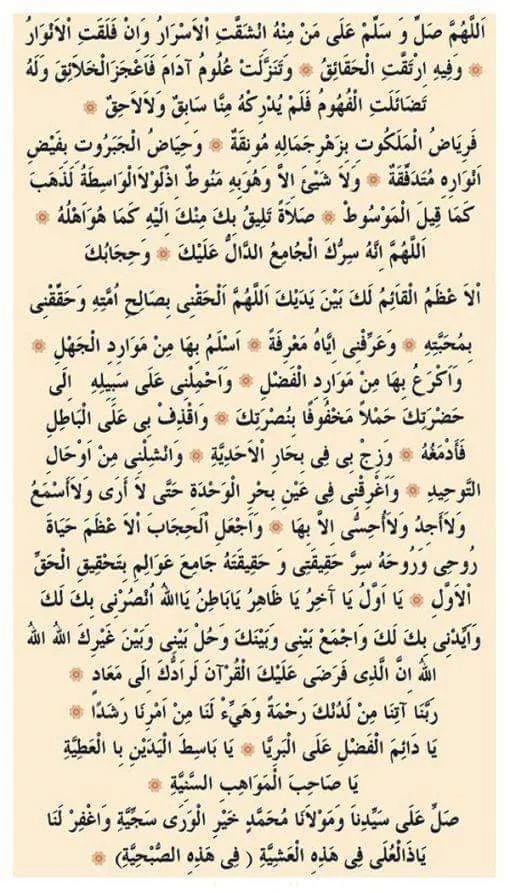 اَللّٰهُمَّ صَلِّ وَ سَلِّمْ عَلَى مَنْ مِنْهُ انْشَقَّتِ اْلاَسْرَارُ وَانْ فَلَقَتِ اْلاَنْوَارُ
❁ وَفِيهِ ارْتَقَتِ الْحَقَائِقُ ❁ وَتَنَزَّلَتْ عُلُومُ آدَامَ فَاعْجَزَالْخَلَائِقَ وَلَهُ
تَضَائَلَتِ الْفُهُومُ فَلَمْ يُدْرِكْهُ مِنَّا سَابِقٌ وَلاَلاَحِقٌ ❁
فَرِيَاضُ الْمَلَكُوتِ بِزَهْرِجَمَالِهِ مُونِقَةٌ ❁ وَحِيَاضُ الْجَبَرُوتِ بِفَيْضِ
اَنْوَارِهِ مُتَدَفِّقَةٌ ❁ وَلاَ شَيْئَ الاَّ وَهُوَبِهِ مَنُوطٌ اِذْلَوْلاَالْوَاسِطَةُ لَذَهَبَ
كَمَا قِيلَ الْمَوْسُوطُ ❁ صَلاَةً تَلِيقُ بِكَ مِنْكَ اِلَيْهِ كَمَا هُوَاَهْلُهُ ❁
اَللّٰهُمَّ اِنَّهُ سِرُّكَ الْجَامِعُ الدَّالُّ عَلَيْكَ ❁ وَحِجَابُكَ
اْلاَ عْظَمُ الْقَائِمُ لَكَ بَيْنَ يَدَيْكَ اَللّٰهُمَّ اَلْحَقْنِى بِصَالِحِ اُمَّتِهِ وَحَقِّقْنِى
بِمُحَبَّتِهِ ❁ وَعَرِّفْنِى اِيَّاهُ مَعْرِفَةً ❁ اَسْلَمُ بِهَا مِنْ مَوَارِدِ الْجَهْلِ ❁
وَاَكْرَعُ بِهَا مِنْ مَوَارِدِ الْفَضْلِ ❁ وَاَحْمِلْنِى عَلَى سَبِيلِهِ اِلَى
حَضْرَتِكَ حَمْلاً مَحْفُوفًا بِنُصْرَتِكَ ❁ وَاقْذِفْ بِى عَلَى الْبَاطِلِ
فَأَدْمَغُهُ ❁ وَزِجْ بِى فِى بِحَارِ اْلاَحَدِيَّةِ ❁ وَانْشِلْنِى مِنْ اَوْحَالِ
التَّوحِيدِ ❁ وَاَغْرِقْنِى فِى عَيْنِ بَحْرِ الْوَحْدَةِ حَتَّى لاَ أَرَى وَلاَأَسْمَعُ
وَلاَأَجِدُ وَلاَأُحِسُّ الاَّ بِهَا ❁ وَاَجْعَلِ اَلْحِجَابَ اْلاَ عْظَمَ حَيَاةَ
رُوحِى وَرُوحَهُ سِرَّ حَقِيقَتِى وَ حَقِيقَتَهُ جَامِعَ عَوَالِمِ بِتَحْقِيقِ الْحَقِّ
اْلاَوَّلِ ❁ يَا اَوَّلُ يَا آخِرُ يَا ظَاهِرُ يَابَاطِنُ يَااللهُ اُنْصُرْنِى بِكَ لَكَ
وَاَيِّدْنِى بِكَ لَكَ وَاجْمَعْ بَيْنِى وَبَيْنَكَ وَحُلْ بَيْنِى وَبَيْنَ غَيْرِكَ اَللهُ اَللهُ
اَللهُ اِنَّ الَّذِى فَرَضَى عَلَيْكَ الْقُرْآنَ لَرَادُّكَ اِلَى مَعَادٍ ❁
رَبَّنَا آتِنَا مِنْ لَدُنْكَ رَحْمَةً وَهَيِّءْ لَنَا مِنْ اَمْرِنَا رَشَدًا ❁
يَا دَائِمَ الْفَضْلِ عَلَى الْبَرِيَّا ❁ يَا بَاسِطَ الْيَدَيْنِ بِا الْعَطِيَّةِ
يَا صَاحِبَ الْمَوَاهِبِ السَّنِيَّةِ ❁
صَلِّ عَلَى سَيِّدِنَا وَمَوْلاَنَا مُحَمَّدٍ خَيْرِ الْوَرَى سَجِيَّةِ وَاغْفِرْ لَنَا
يَاذَالْعُلَى فِى هَذِهِ الْعَشِيَّةِ ( فِى هَذِهِ الصُّبْحِيَّةِ) ❁